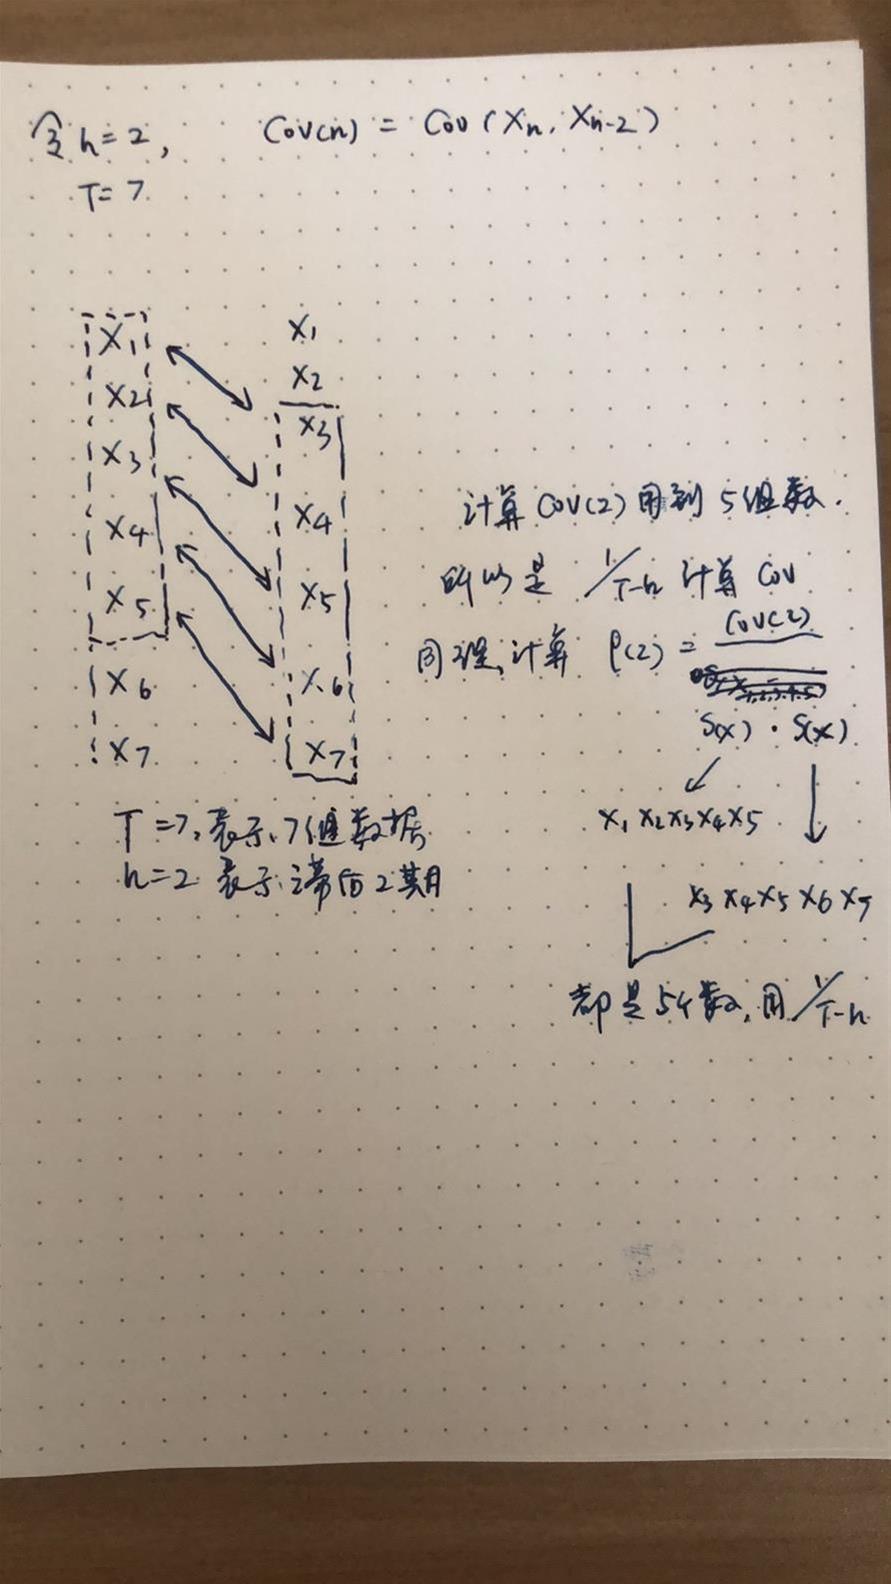 令 h=2, Cov(h) = Cov(Xn, Xn-2)
T=7
X1 X1
X2 X2
X3 X3
X4 X4
X5 X5
X6 X6
X7 X7
计算 Cov(2) 用到 5组数.
所以是 1/T-h 计算 Cov
同理,计算 ρ(2) = Cov(2)
S(x) · S(x)
X1 X2 X3 X4 X5
X3 X4 X5 X6 X7
都是5个数,用 1/T-h
T=7,表示7组数据
h=2 表示滞后2期